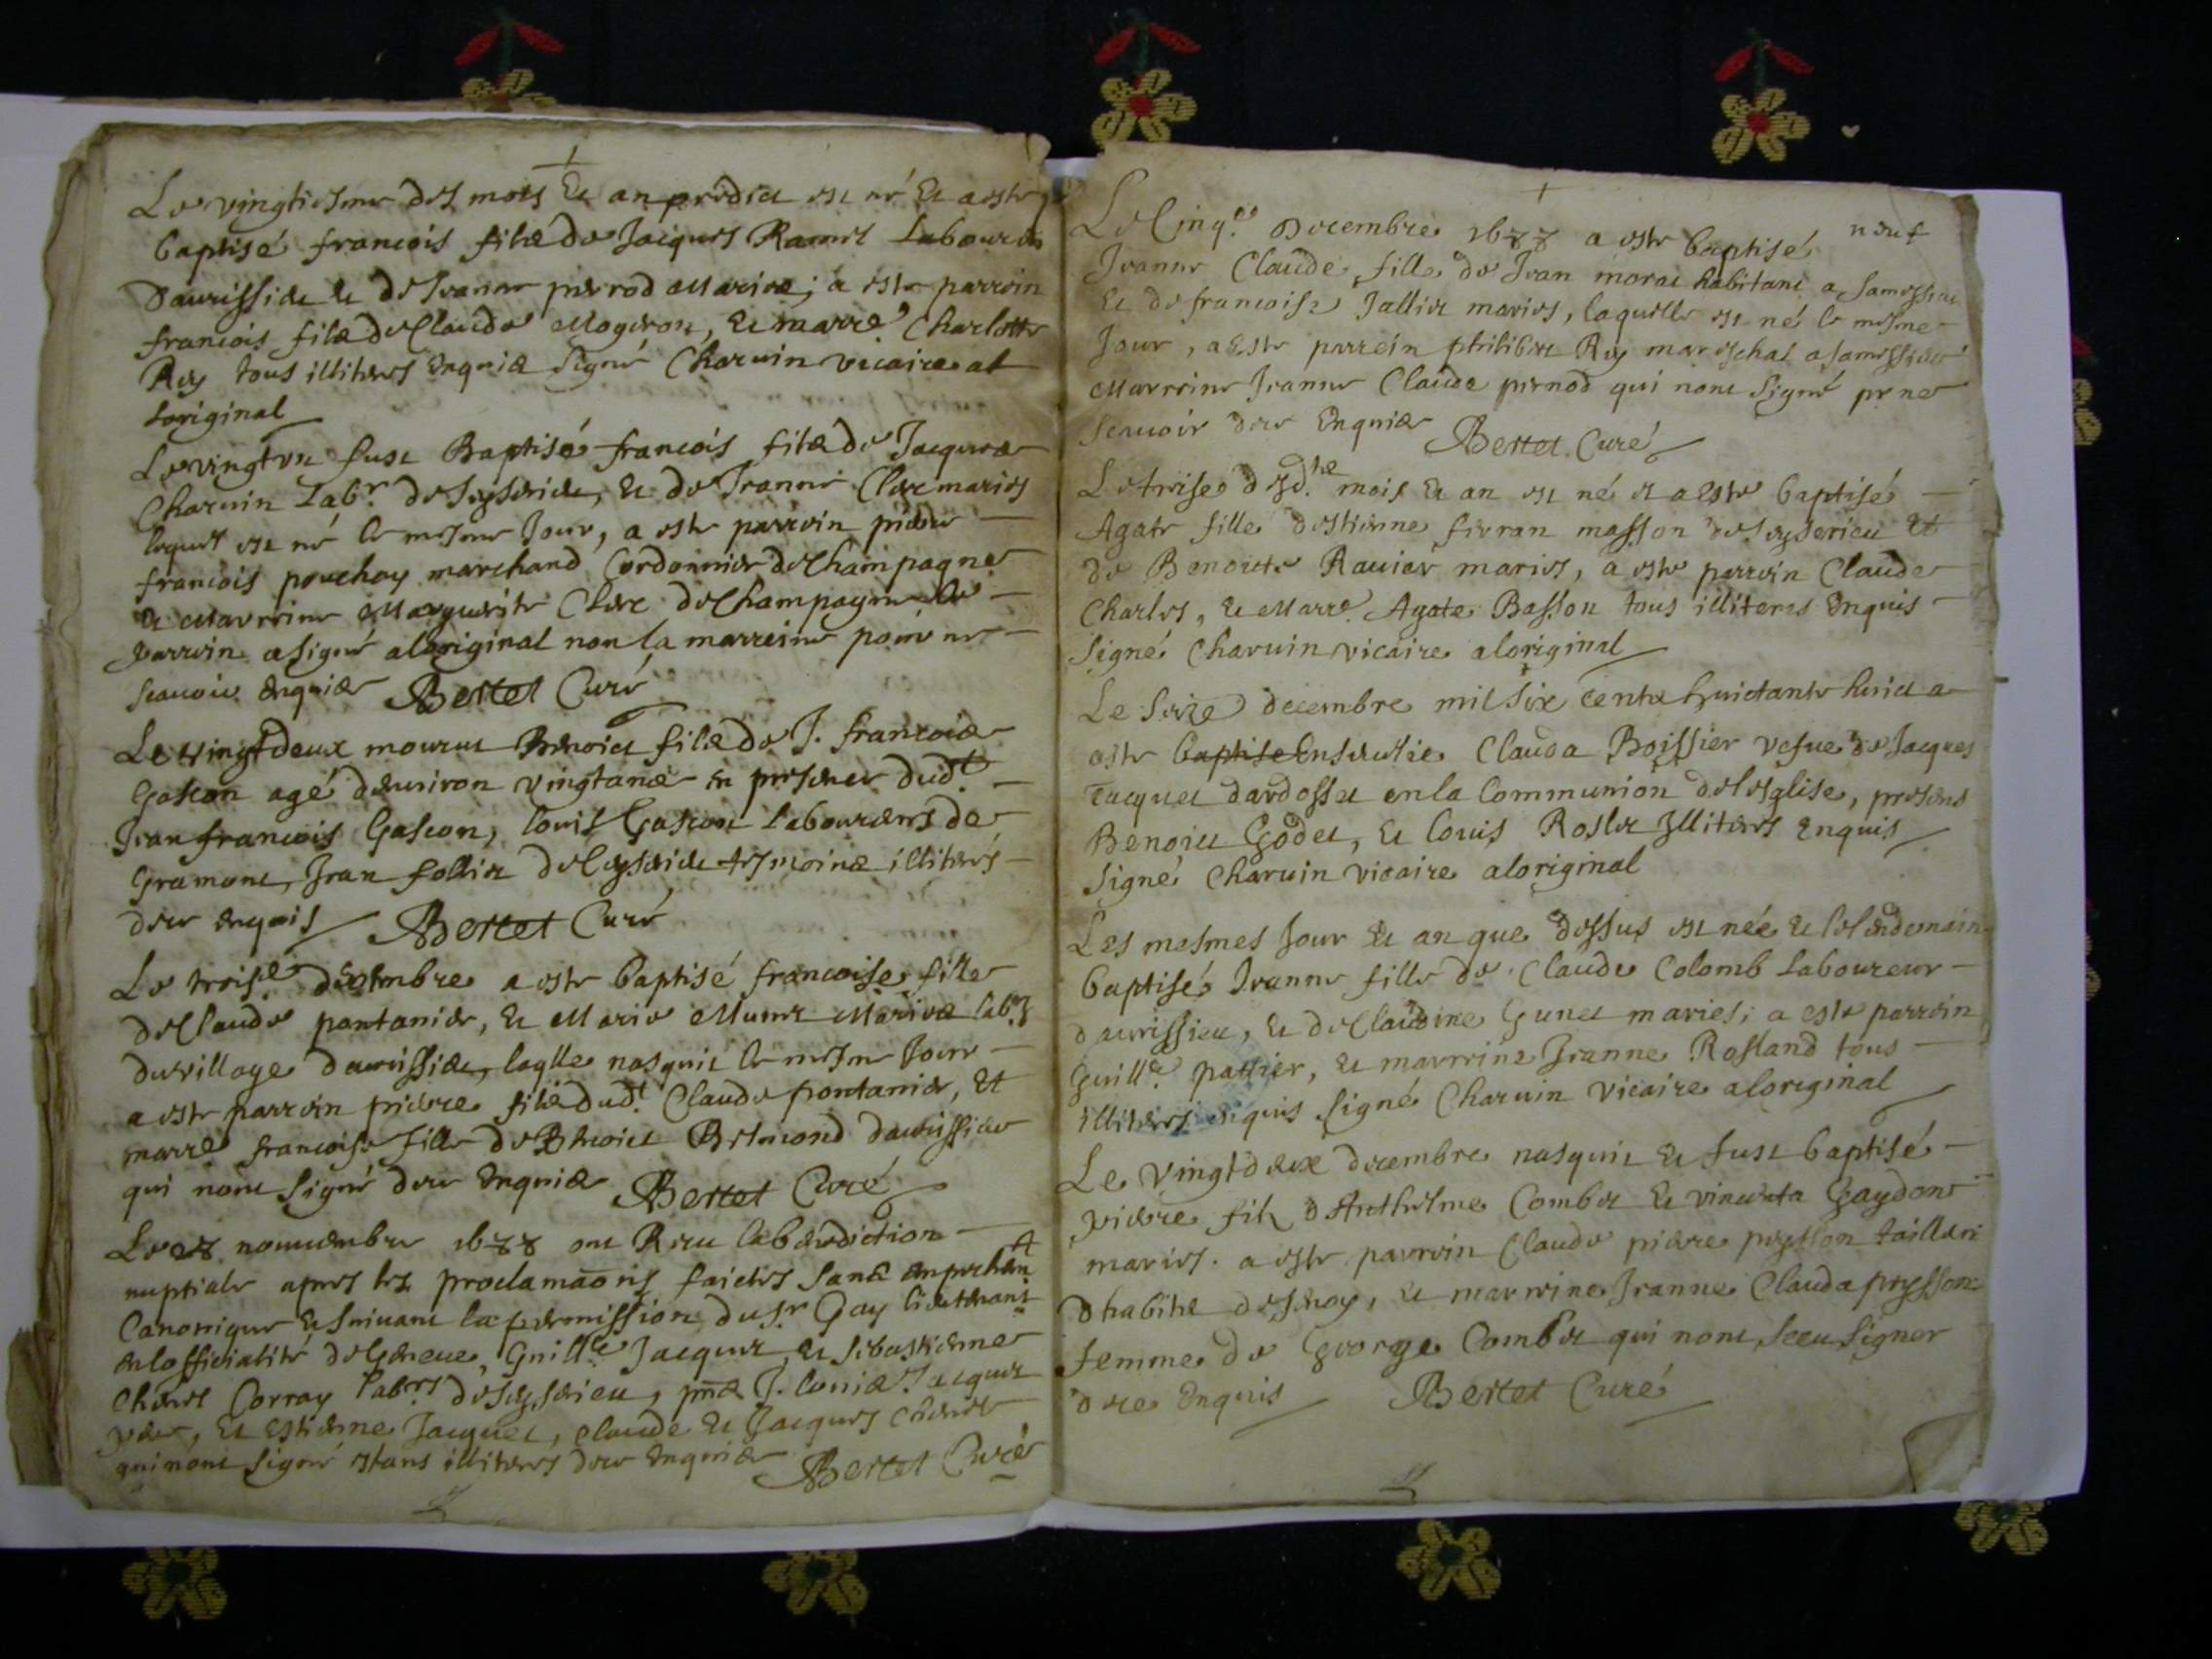 Le vingtiesme des mois et an predict est né et a este
baptisé francois filz de Jacques Ramel Laboureur
daurissieu et de Jeanne pierrod Mariez; a este parrein
francois filz de Claude Mogeron, et marre Charlotte
Rey tous illiteres enquis signé Charuin vicaire al
loriginal
Le vingt vn fust Baptisé francois filz de Jacques
Charuin Labr de Seyserieu, et de Jeanne Clerc maries
lequel est né le mesme Jour, a este parrein pierre
francois pouchoy marchand Cordonnier de Champagne
et Marreine Marguerite Clerc de Champagne le
parrein a signé aloriginal non la marreine pour ne
scauoir enquis Bertet Curé
Le vingt deux mourut Benoict filz de J. francois
Gascon agé denuiron vingt ans en presence dudt
Jean francois Gascon, louis Gascon laboureurs de
Gramont, Jean follier de Ceyserieu tesmoins illiteres
de ce enquis Bertet Curé
Le troise decembre a este baptisé francoise fille
de Claude pontanier, et Marie Munet Mariez labrs
du village daurissieu, laqlle nasquit le mesme Jour
a este parrein pierre filz dudt Claude pontanier, et
marre francoise fille de Benoict Bermond daurissieu
qui nont signé de ce enquis Bertet Curé
Le 28 nouuembre 1688 ont Receu la benediction
nuptiale apres les proclamaons faictes sans enpechemt
Canonique et suiuant la permission du sr Gay lieutenant
en lofficialité de Geneue, Guille Jacquet et Sebastienne
Corray labrs de Seyserieu, pnts J. louis Jacquet
pere, et Estienne Jacquet, claude et Jacques
qui nont signé estans illiteres de ce enquis Bertet Curé
neuf
Le Cinqe Decembre 1688 a este baptisé
Jeanne Claude fille de Jean morat habitant a samessieu
et de francoise Jallier maries, laquelle est né le mesme
Jour, a este parrein philibert Rey mareschal a samessieu
Marreine Jeanne Claude pernod qui nont signé pr ne
scauoir de ce enquis Bertet Curé
Le treise desd.tz mois et an est né et a este baptisé
Agate fille destienne fierran masson de Seyserieu et
de Benoite Rauier maries, a este parrein Claude
Charles, et Marre Agate Basson tous illiteres enquis
signé Charuin vicaire aloriginal
Le seize decembre mil six centz huictante huict a
este baptise Enseuelie Clauda Boissier vefue de Jacques
Tacquet dardosset en la Communion de lesglise, presens
Benoict Godet, et louis Roslet Illiteres enquis
signé Charuin vicaire aloriginal
Les mesmes Jour et an que dessus est née et le lendemain
baptisé Jeanne fille de Claude Colomb Laboureur
daurissieu, et de Claudine Gunet maries; a este parrein
Guille pattier, et marreine Jeanne Rosland tous
illiteres enquis signé Charuin vicaire aloriginal
Le vingt deux decembre nasquit et fust baptisé
pierre filz dAnthelme Combet et vincenta Gaydon
maries. a este parrein Claude pierre peysson
et marreine Jeanne Clauda peysson
femme de George Combet qui nont sceu signer
de ce enquis Bertet Curé